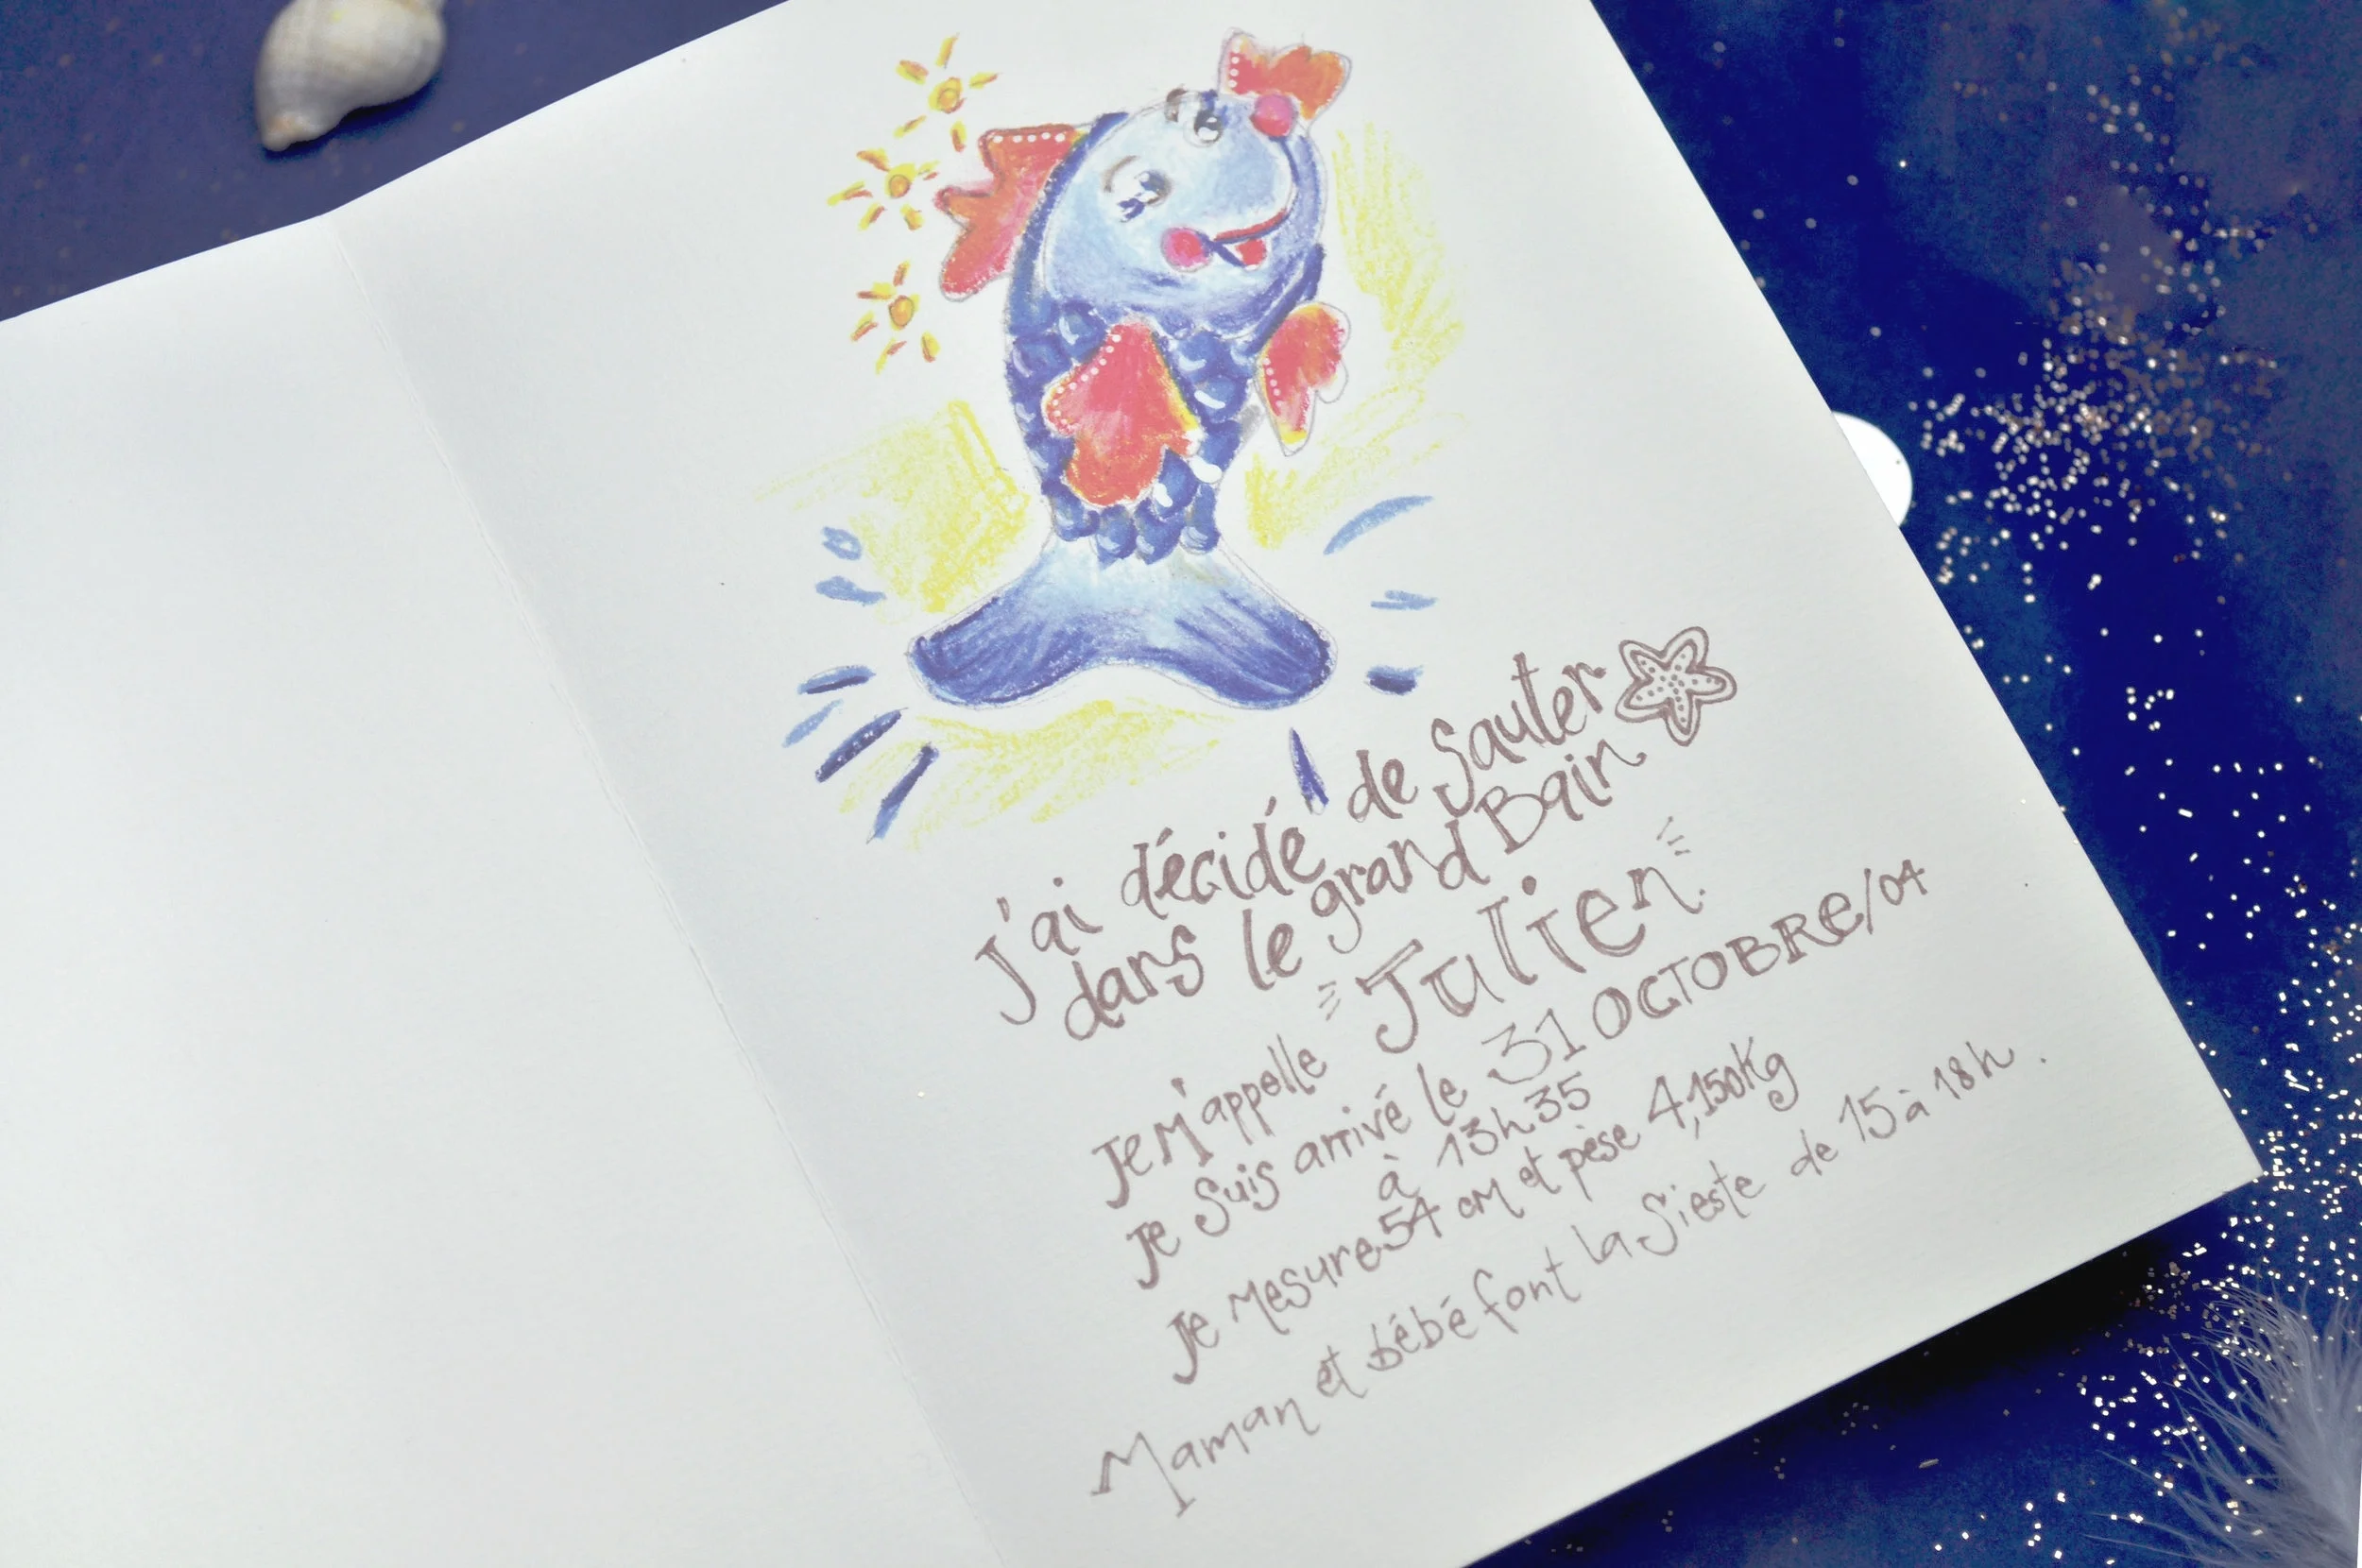 J'ai décidé de sauter
dans le grand Bain
Je m'appelle "Julien"
Je suis arrivé le 31 OCTOBRE/04
à 13h35
Je mesure 54 cm et pèse 4,150Kg
Maman et bébé font la sieste de 15 à 18h.